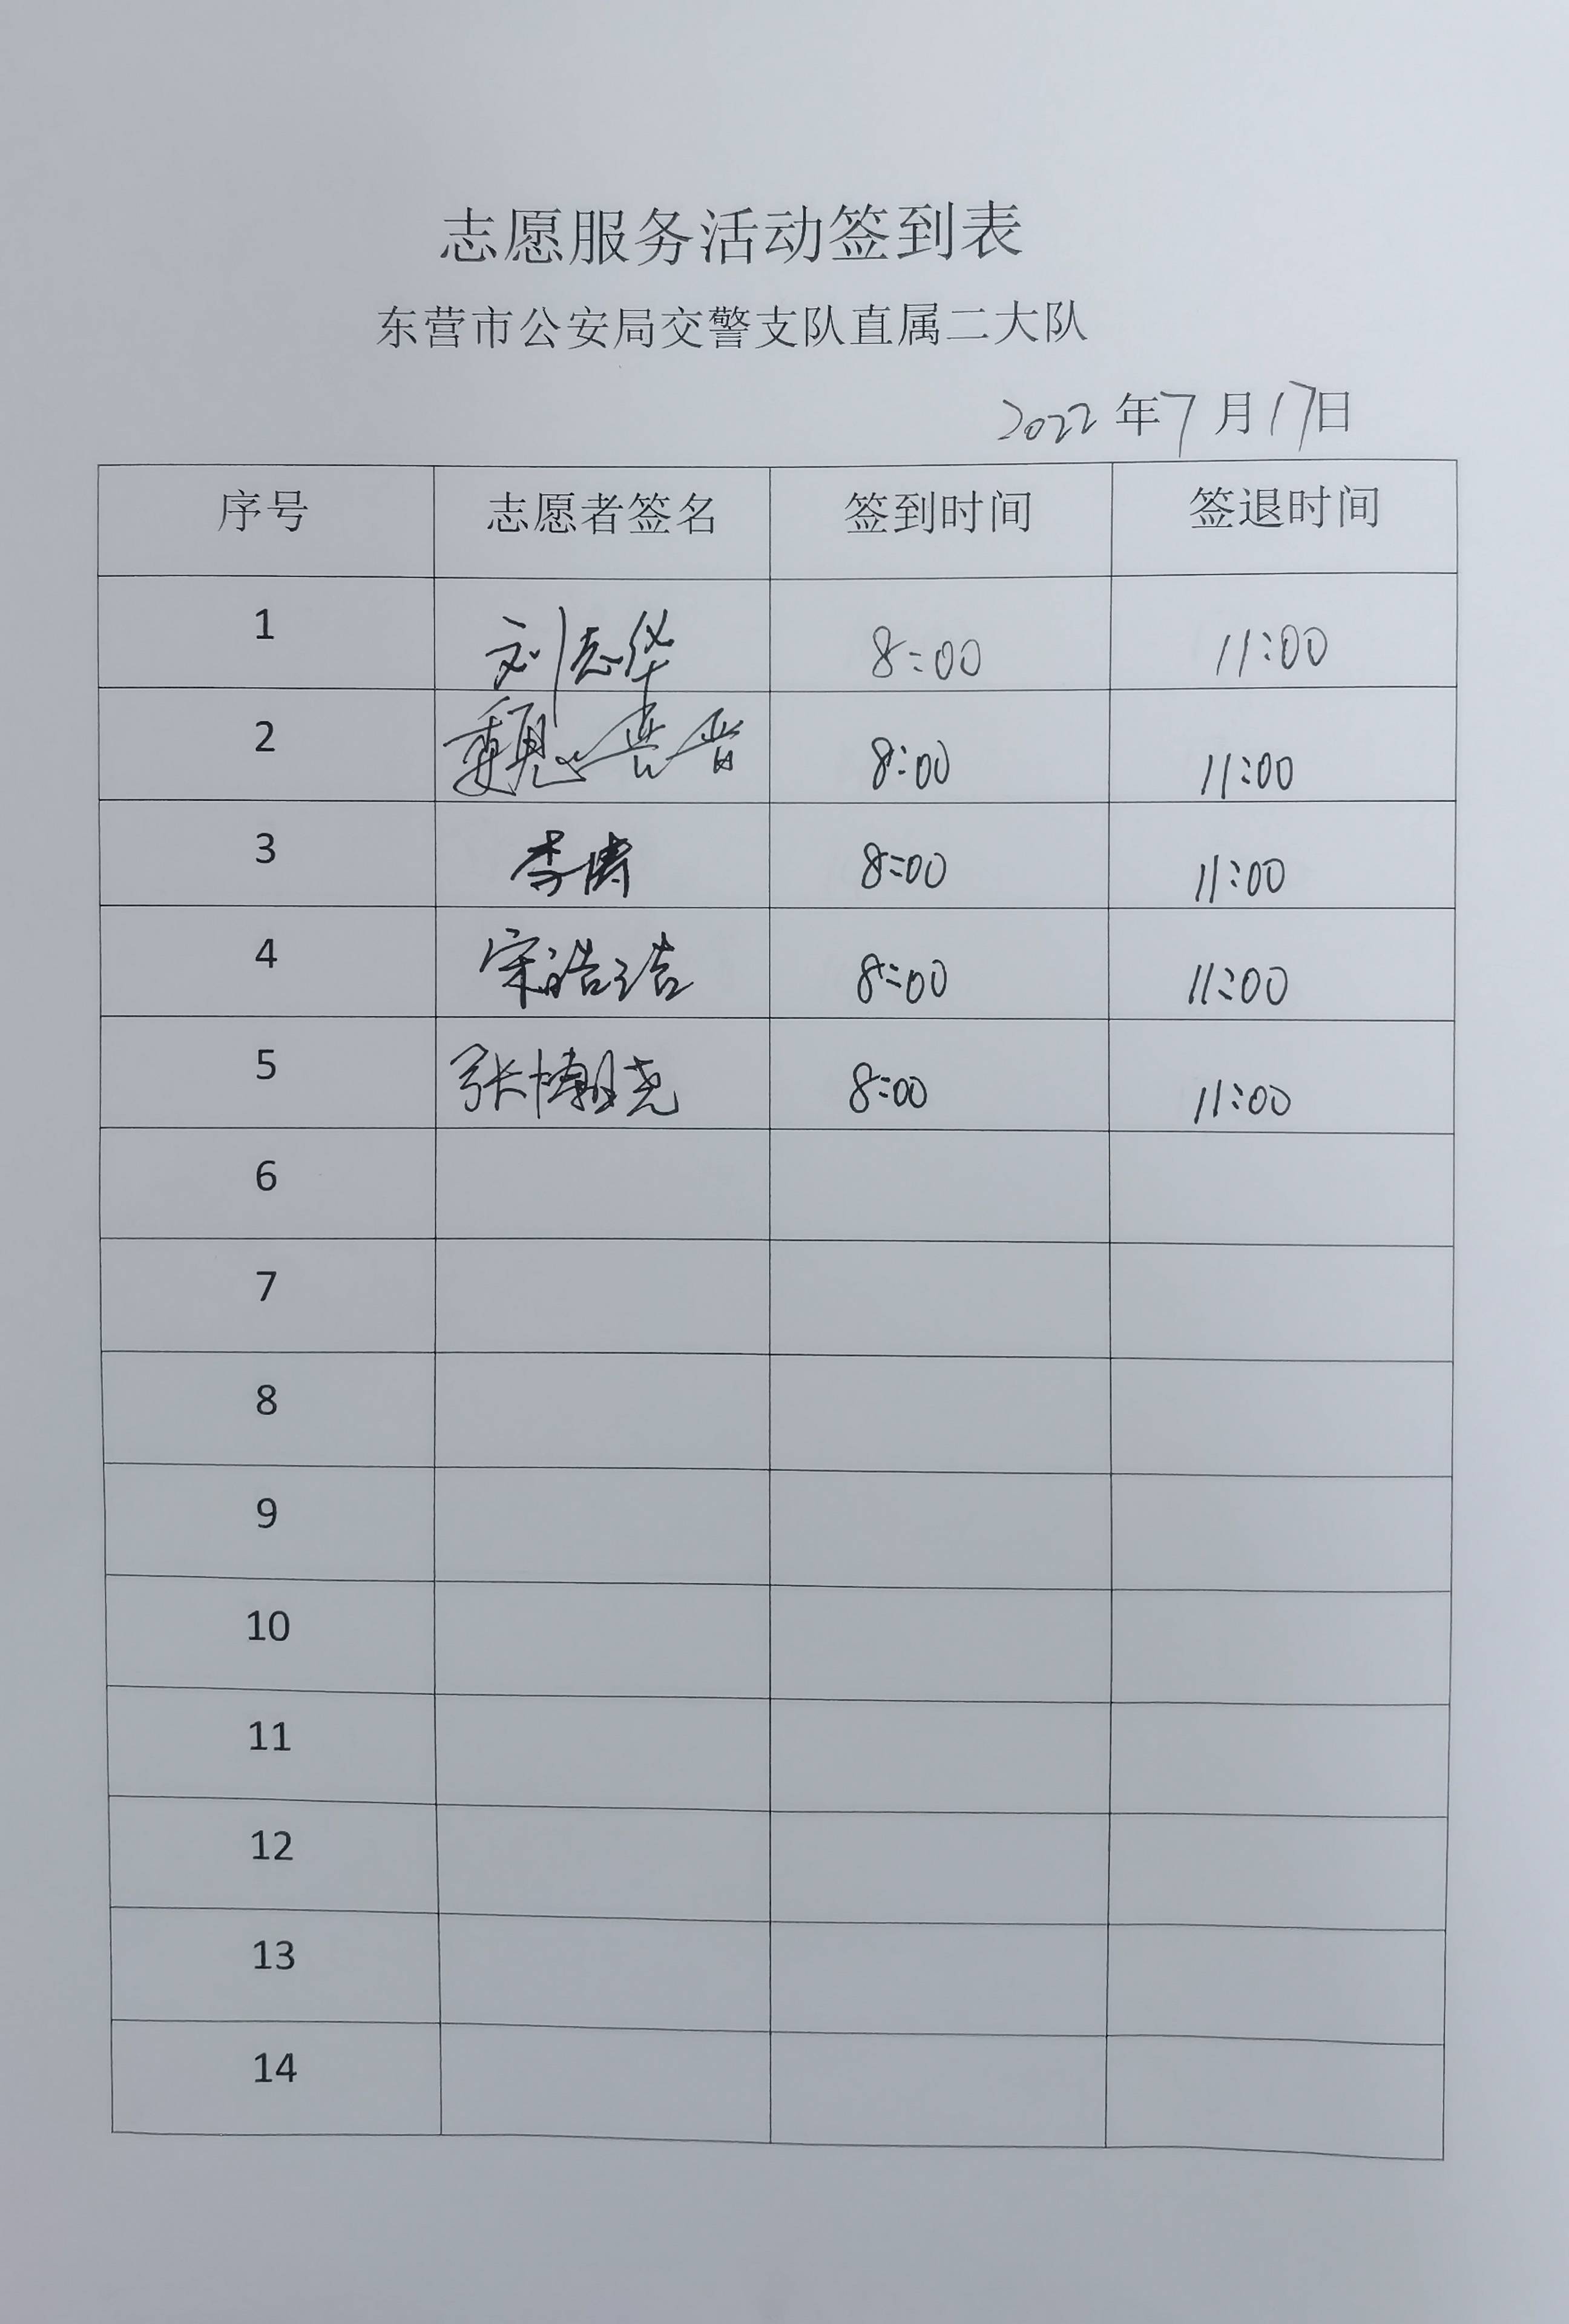 志愿服务活动签到表
东营市公安局交警支队直属二大队
2022年7月17日
序号 志愿者签名 签到时间 签退时间
1 刘志华 8:00 11:00
2 魏 8:00 11:00
3 李涛 8:00 11:00
4 宋浩洁 8:00 11:00
5 张博尧 8:00 11:00
6
7
8
9
10
11
12
13
14